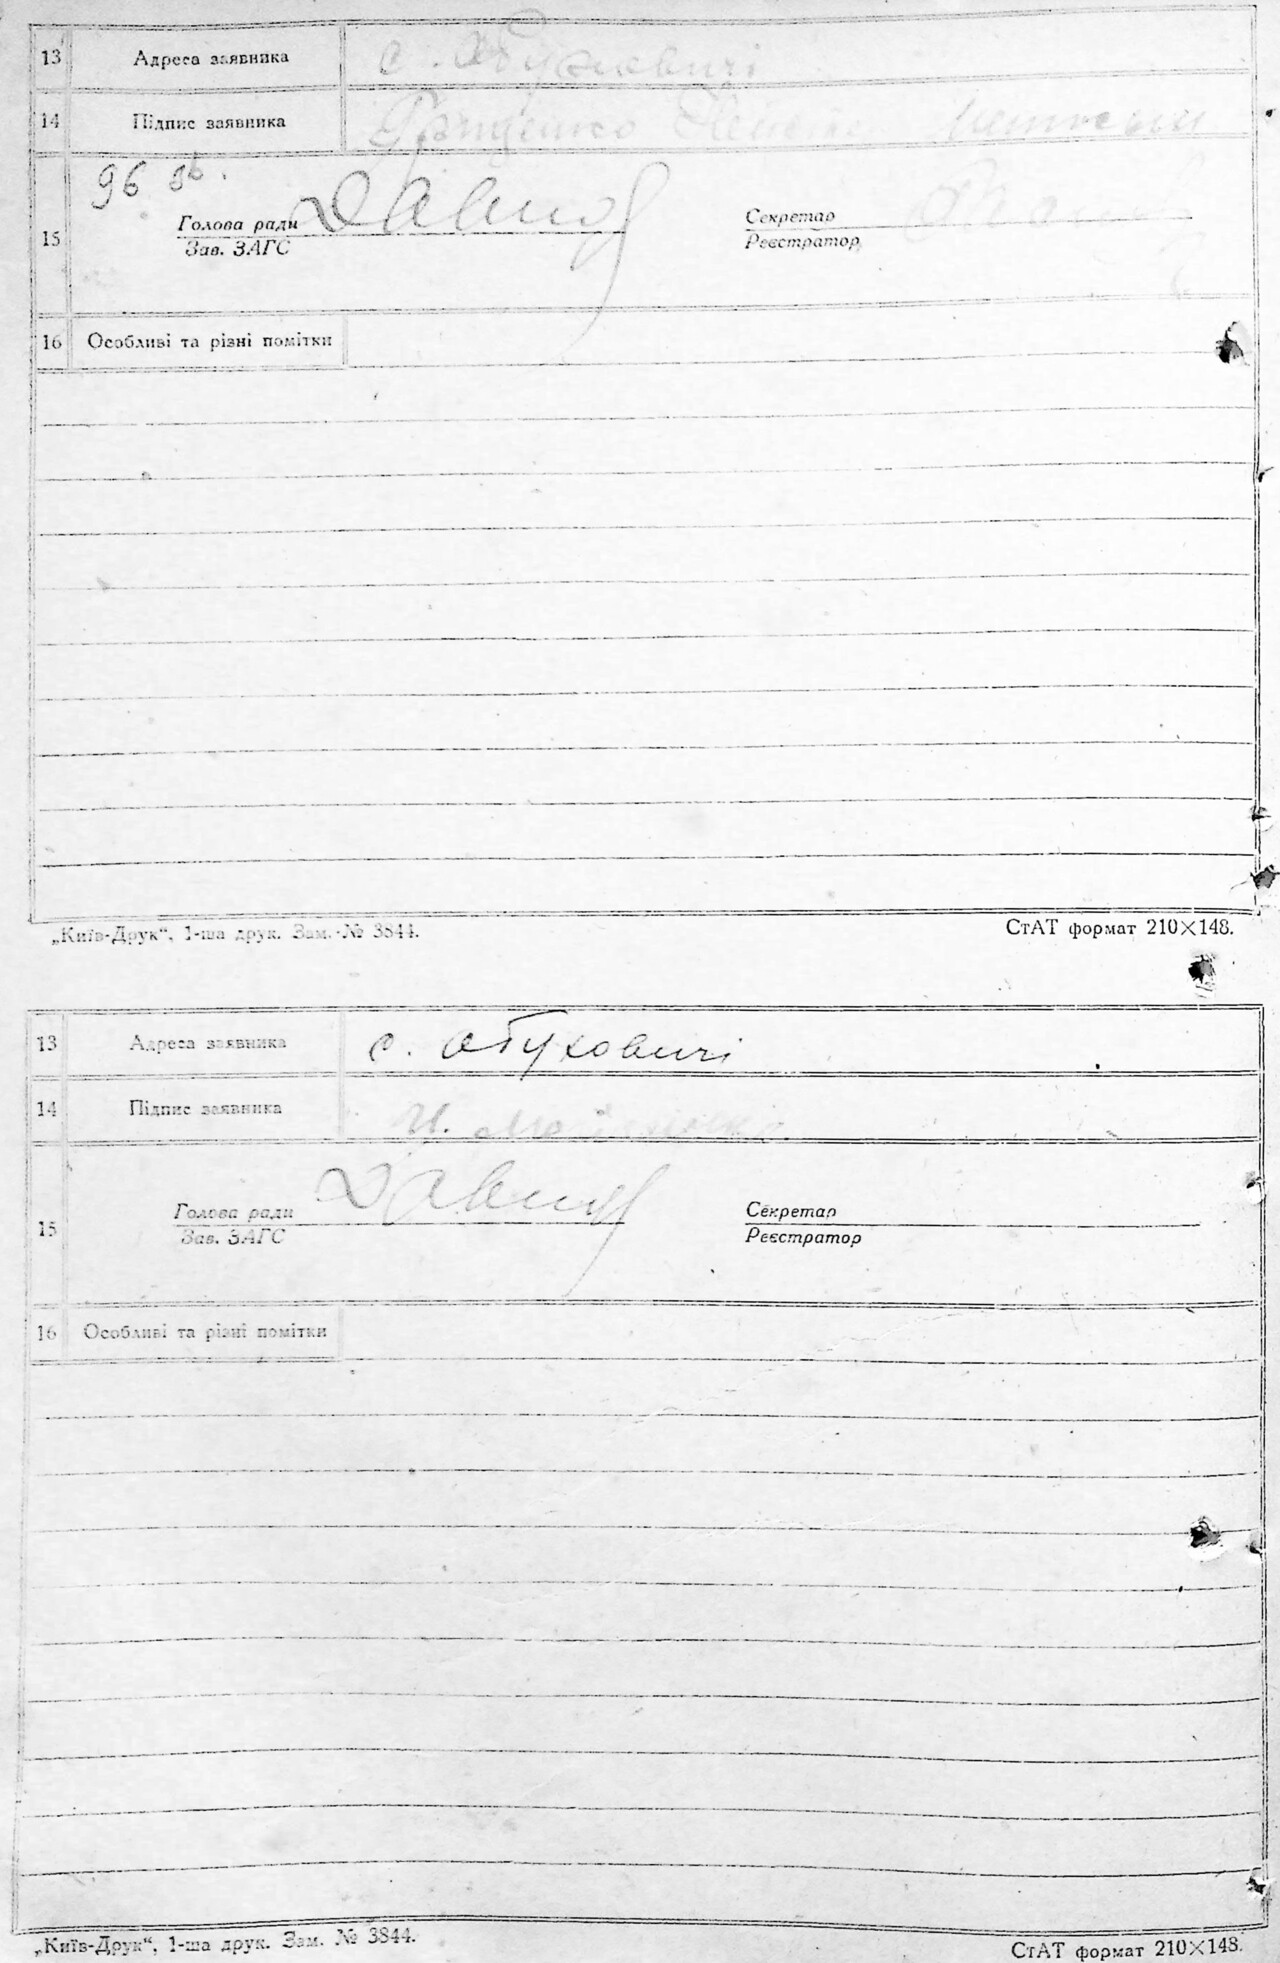 13 Адреса заявника с. Обуховичі
14 Підпис заявника
96 зв.
15 Голова ради Секретар
Зав. ЗАГС Реєстратор
16 Особливі та різні помітки
„Київ-Друк“, 1-ша друк. Зам. № 3844. СтАТ формат 210×148.
13 Адреса заявника с. Обуховичі
14 Підпис заявника
15 Голова ради Секретар
Зав. ЗАГС Реєстратор
16 Особливі та різні помітки
„Київ-Друк“, 1-ша друк. Зам. № 3844. СтАТ формат 210×148.